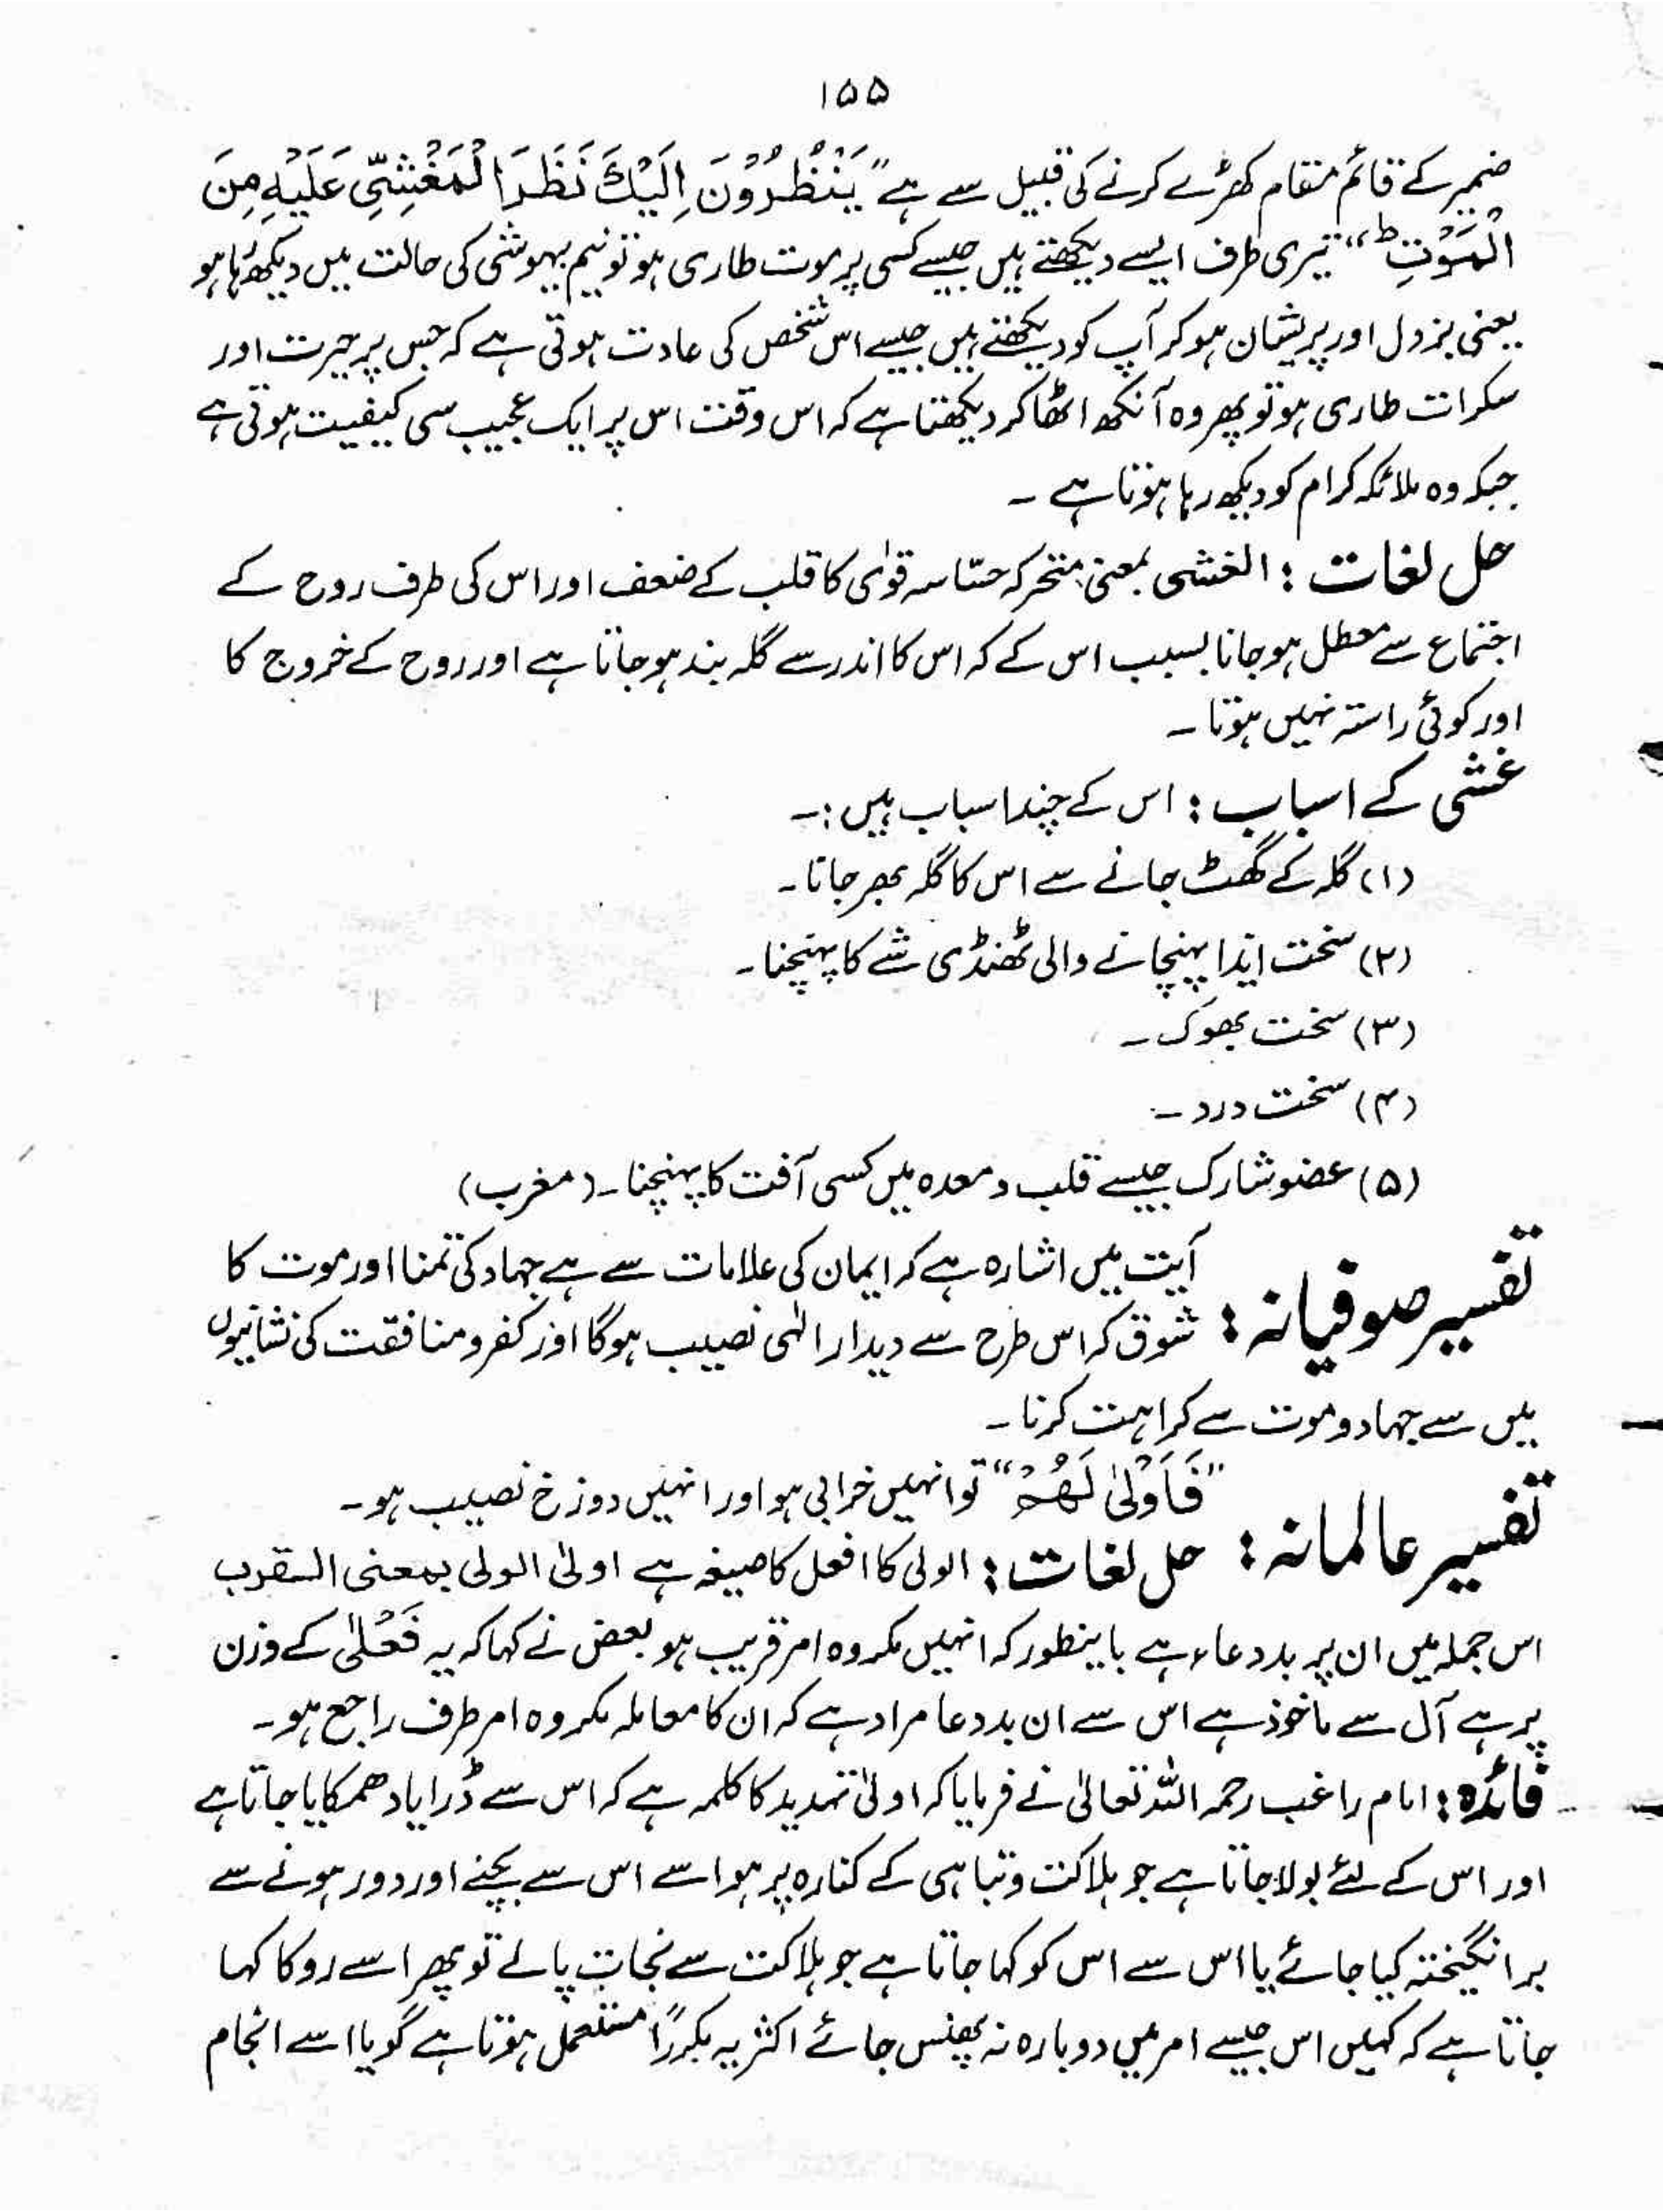 ۱۵۵
ضمیر کے قائم مقام کھڑے کرنے کی قبیل سے ہے ”یَنْظُرُوْنَ اِلَیْكَ نَظَرَ الْمَغْشِیِّ عَلَیْهِ مِنَ
الْمَوْتِ ؕ“ تیری طرف ایسے دیکھتے ہیں جیسے کسی پر موت طاری ہو تو نیم بہوشی کی حالت میں دیکھ رہا ہو
یعنی بزدل اور پریشان ہو کر آپ کو دیکھتے ہیں جیسے اس شخص کی عادت ہوتی ہے کہ جس پر حیرت اور
سکرات طاری ہو تو پھر وہ آنکھ اٹھا کر دیکھتا ہے کہ اس وقت اس پر ایک عجیب سی کیفیت ہوتی ہے
جبکہ وہ ملائکہ کرام کو دیکھ رہا ہوتا ہے ۔
حل لغات : الغشی بمعنی متحرکہ حسّاسہ قوٰی کا قلب کے ضعف اور اس کی طرف روح کے
اجتماع سے معطل ہو جانا بسبب اس کے کہ اس کا اندر سے گلہ بند ہو جاتا ہے اور روح کے خروج کا
اور کوئی راستہ نہیں ہوتا ۔
غشی کے اسباب : اس کے چند اسباب ہیں :۔
(۱) گلہ کے گھٹ جانے سے اس کا گلہ بھر جاتا ۔
(۲) سخت ایذا پہنچانے والی ٹھنڈی شے کا پہنچنا ۔
(۳) سخت بھوک ۔
(۴) سخت درد ۔
(۵) عضو شارک جیسے قلب و معدہ میں کسی آفت کا پہنچنا ۔ (مغرب)
تفسیر صوفیانہ : آیت میں اشارہ ہے کہ ایمان کی علامات سے ہے جہاد کی تمنا اور موت کا
شوق کہ اس طرح سے دیدار الٰہی نصیب ہوگا اور کفر و منافقت کی نشانیوں
میں سے جہاد و موت سے کراہت کرنا ۔
تفسیر عالمانہ : ”فَاَوْلٰی لَهُمْ“ تو انہیں خرابی ہو اور انہیں دوزخ نصیب ہو ۔
حل لغات : الولی کا افعل کا صیغہ ہے اولیٰ الولی بمعنی القرب
اس جملہ میں ان پر بددعاء ہے باینطور کہ انہیں مکروہ امر قریب ہو بعض نے کہا کہ یہ فَعْلٰی کے وزن
پر ہے آل سے ماخوذ ہے اس سے ان بددعا مراد ہے کہ ان کا معاملہ مکروہ امر طرف راجع ہو ۔
فائدہ : امام راغب رحمہ اللہ تعالیٰ نے فرمایا کہ اولیٰ تہدید کا کلمہ ہے کہ اس سے ڈرایا دھمکایا جاتا ہے
اور اس کے لئے بولا جاتا ہے جو ہلاکت و تباہی کے کنارہ پر ہو اسے اس سے بچنے اور دور ہونے سے
برانگیختہ کیا جائے یا اس سے اس کو کہا جاتا ہے جو ہلاکت سے نجات پالے تو پھر اسے روکا کہا
جاتا ہے کہ کہیں اس جیسے امر میں دوبارہ نہ پھنس جائے اکثر یہ مکررًا مستعمل ہوتا ہے گویا اسے انجام